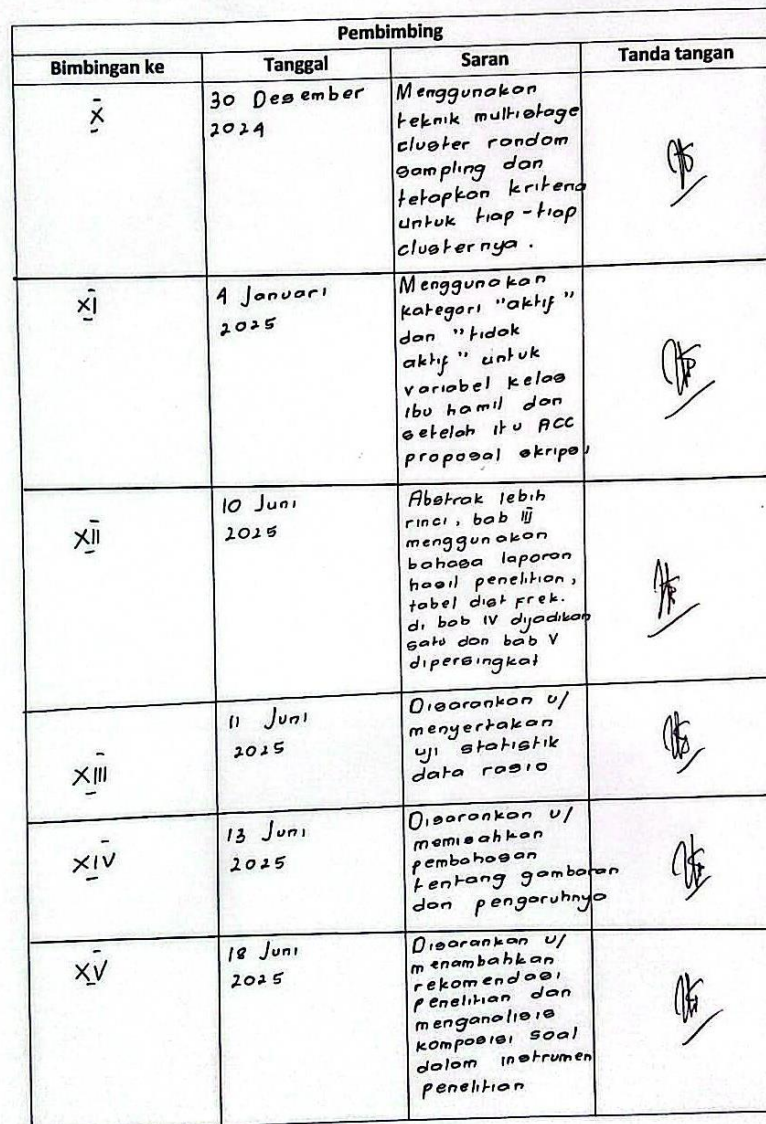 Pembimbing
Bimbingan ke Tanggal Saran Tanda tangan
X
30 Desember
2024
Menggunakan
teknik multistage
cluster random
sampling dan
tetapkan kriteria
untuk tiap-tiap
clusternya.
XI
4 Januari
2025
Menggunakan
kategori "aktif"
dan "tidak
aktif" untuk
variabel kelas
ibu hamil dan
setelah itu ACC
proposal skripsi
XII
10 Juni
2025
Abstrak lebih
rinci, bab III
menggunakan
bahasa laporan
hasil penelitian,
tabel dist frek.
di bab IV dijadikan
satu dan bab V
dipersingkat
XIII
11 Juni
2025
Disarankan u/
menyertakan
uji statistik
data rasio
XIV
13 Juni
2025
Disarankan u/
memisahkan
pembahasan
tentang gambaran
dan pengaruhnya
XV
18 Juni
2025
Disarankan u/
menambahkan
rekomendasi
penelitian dan
menganalisis
komposisi soal
dalam instrumen
penelitian